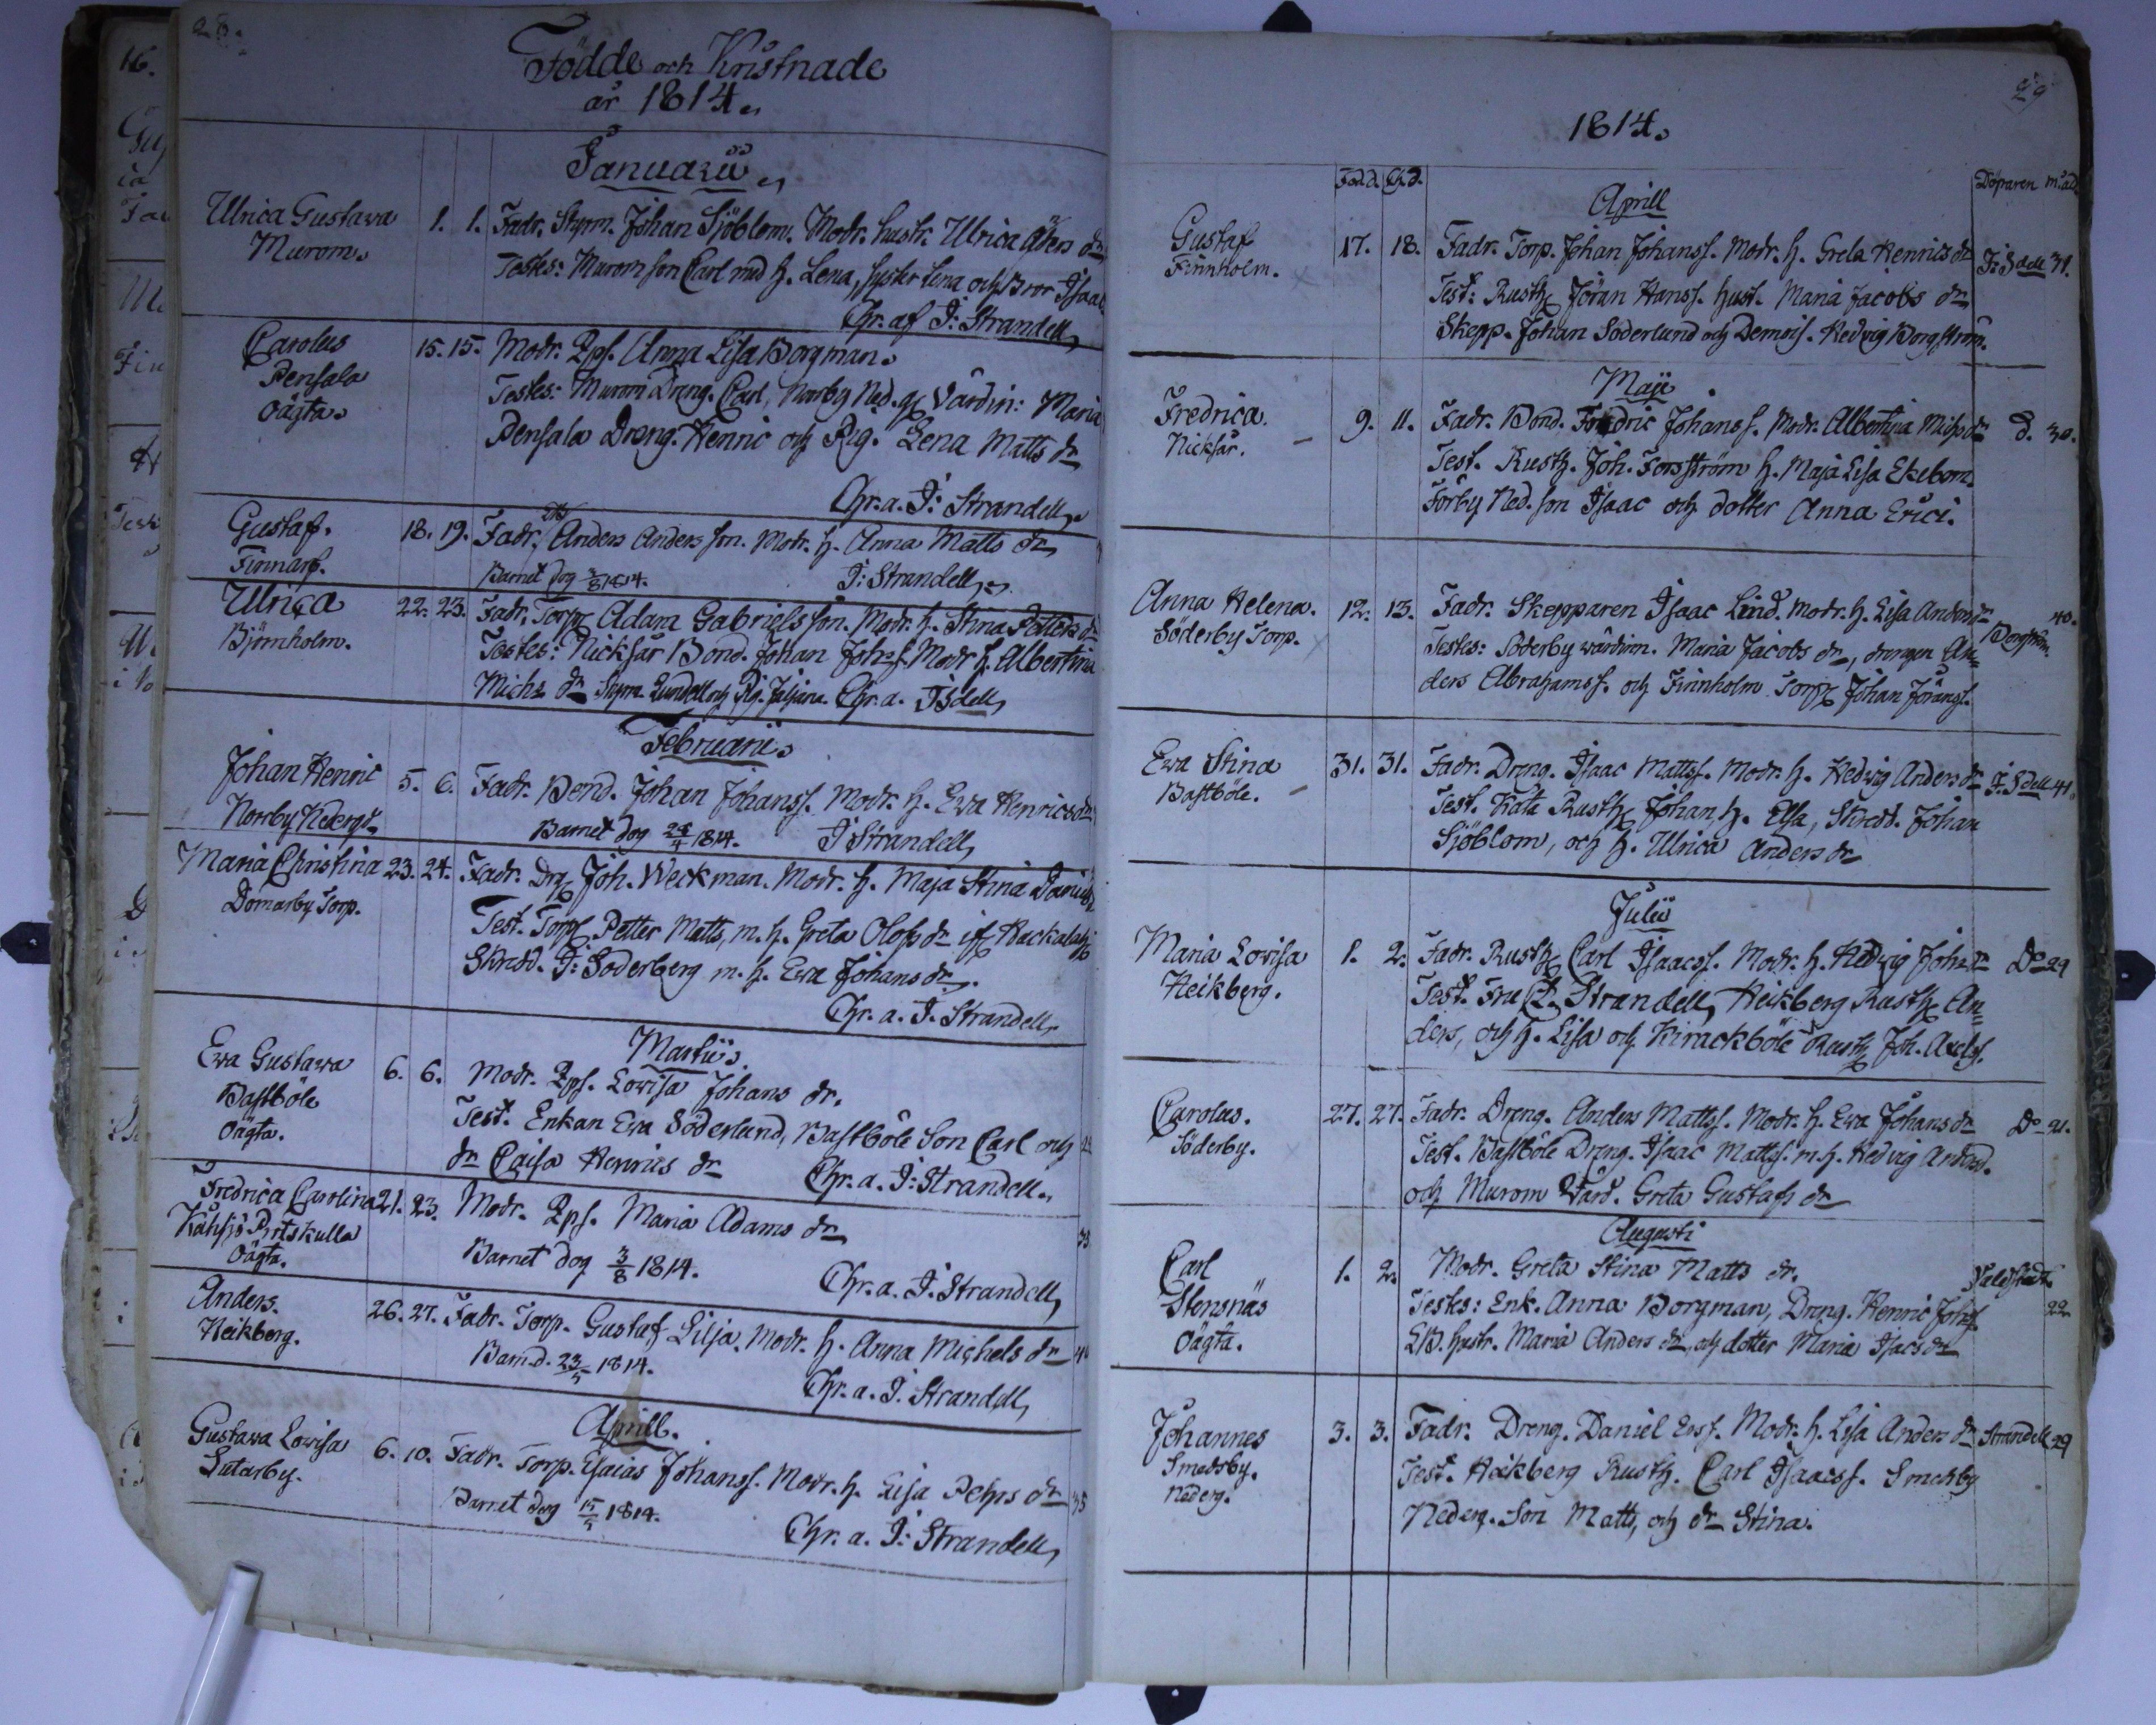 28.
Födde och Kristnade
år 1814.
Januarii
Ulrica Gustava
Murom.
1. 1. Fadr. Styrm. Johan Sjöblom. Modr. hustr. Ulrica dr
Testes: Murom son Carl med h. Lena, syster Lena och Bror Isaac
Chr. af J: Strandell
Carolus
Pensala
oägta.
15. 15. Modr. Qps. Anna Lisa Borgman.
Testes: Murom Dreng. Carl, Norrby Ned. g Värdin: Maria
Pensala Dreng. Henric och Pig. Lena Matts dr
Chr. a. J: Strandell
Gustaf.
Finnarf.
18. 19. Fadr. Anders Andersson. Modr. h. Anna Matts dr
Barnet dog 3/8 1814. J: Strandell
Ulrica
Björnholm.
22. 23. Fadr. Torp. Adam Gabrielsson. Modr. h. Stina Petters dr
Testes: Nicksår Bond. Johan Johs s. Modr h. Albertina
Michs dr Styrm. Lundell och Pig. Juliana. Chr. a. JSdell
Februarii
Johan Henric
Norrby Nederg.
5. 6. Fadr. Bond. Johan Johanss. Modr. h. Eva Henrics dr
Barnet dog 1814. J Strandell
Maria Christina
Domarby Torp.
23. 24. Fadr. Drg Joh. Weckman. Modr. h. Maja Stina Daniels
Test. Torp. Petter Matts, m. h. Greta Olofs dr
Skredd. J: Söderberg m. h. Eva Johans dr.
Chr. a. J. Strandell
Martii
Eva Gustava
Bastböle
oägta.
6. 6. Modr. Qps. Lovisa Johans dr.
Test. Enkan Eva Söderlund, Bastböle Son Carl och
dr Caisa Henrics dr Chr. a. J: Strandell
Fredrica Carolina
Pretskulla
oägta.
21. 23. Modr. Qps. Maria Adams dr
Barnet dog 3/8 1814.
Chr. a. J. Strandell
Anders.
Heikberg.
26. 27. Fadr. Torp. Gustaf Lilja. Modr. h. Anna Michels dr
Barn. d. 23/5 1814.
Chr. a. J. Strandell
Aprill.
Gustava Lovisa
Lutarby.
6. 10. Fadr. Torp. Esaias Johanss. Modr. h. Lisa Pehrs dr 35
Barnet dog 15/5 1814.
Chr. a. J: Strandell
29
1814.
Föd. d. Ch. d. Döparen m. åld.
Aprill
Gustaf
Finnholm.
17. 18. Fadr. Torp. Johan Johanss. Modr. h. Greta Henrics dr J: Sdell 31.
Test: Rusth. Jöran Hanss. hust. Maria Jacobs dr
Skepp. Johan Söderlund och Demois. Hedvig Borgström.
Maji
Fredrica.
Nicksår.
9. 11. Fadr. Bond. Fredric Johanss. Modr. Albertina Michs dr d. 30.
Test. Rusth. Joh. Forsström h. Maja Lisa Ekebom.
Förby Ned. son Isaac och dotter Anna Erici.
Anna Helena.
Söderby Torp.
12. 13. Fadr. Skepparen Isaac Lind. Modr. h. Lisa Anders dr Borgström. 40.
Testes: Söderby värdinn. Maria Jacobs dr, drengen An=
ders Abrahamss. och Finnholm Torp. Johan Jöranss.
Eva Stina
Bastböle.
31. 31. Fadr. Dreng. Isaac Mattss. Modr. h. Hedvig Anders dr J. Sdell 41.
Test. Rusth. Johan h. Elsa, Skredd. Johan
Sjöblom, och h. Ulrica Anders dr
Julii
Maria Lovisa
Heikberg.
1. 2. Fadr. Rusth. Carl Isaacss. Modr. h. Hedvig Johs dr Do 29
Test. Fru Strandell, Heikberg Rusth. An=
ders, och h. Lisa och Kirackböle Rusth. Joh. Axels.
Carolus.
Söderby.
27. 27. Fadr. Dreng. Anders Mattss. Modr. h. Eva Johans dr Do 21.
Test. Bastböle Dreng. Isaac Mattss. m. h. Hedvig Andersd.
och Murom Värd. Greta Gustafs dr
Augusti
Carl
Stensnäs
oägta.
1. 2. Modr. Greta Stina Matts dr.
Testes: Enk. Anna Borgman, Dreng. Henric Johs s. 22
hustr. Maria Anders dr, och dotter Maria Isacs dr
Johannes
Smedsby.
Nederg.
3. 3. Fadr. Dreng. Daniel Ers s. Modr. h. Lisa Anders dr Strandell 29
Test. Heikberg Rusth. Carl Isaacss. Smedsby
Nederg. Son Matts, och dr Stina.